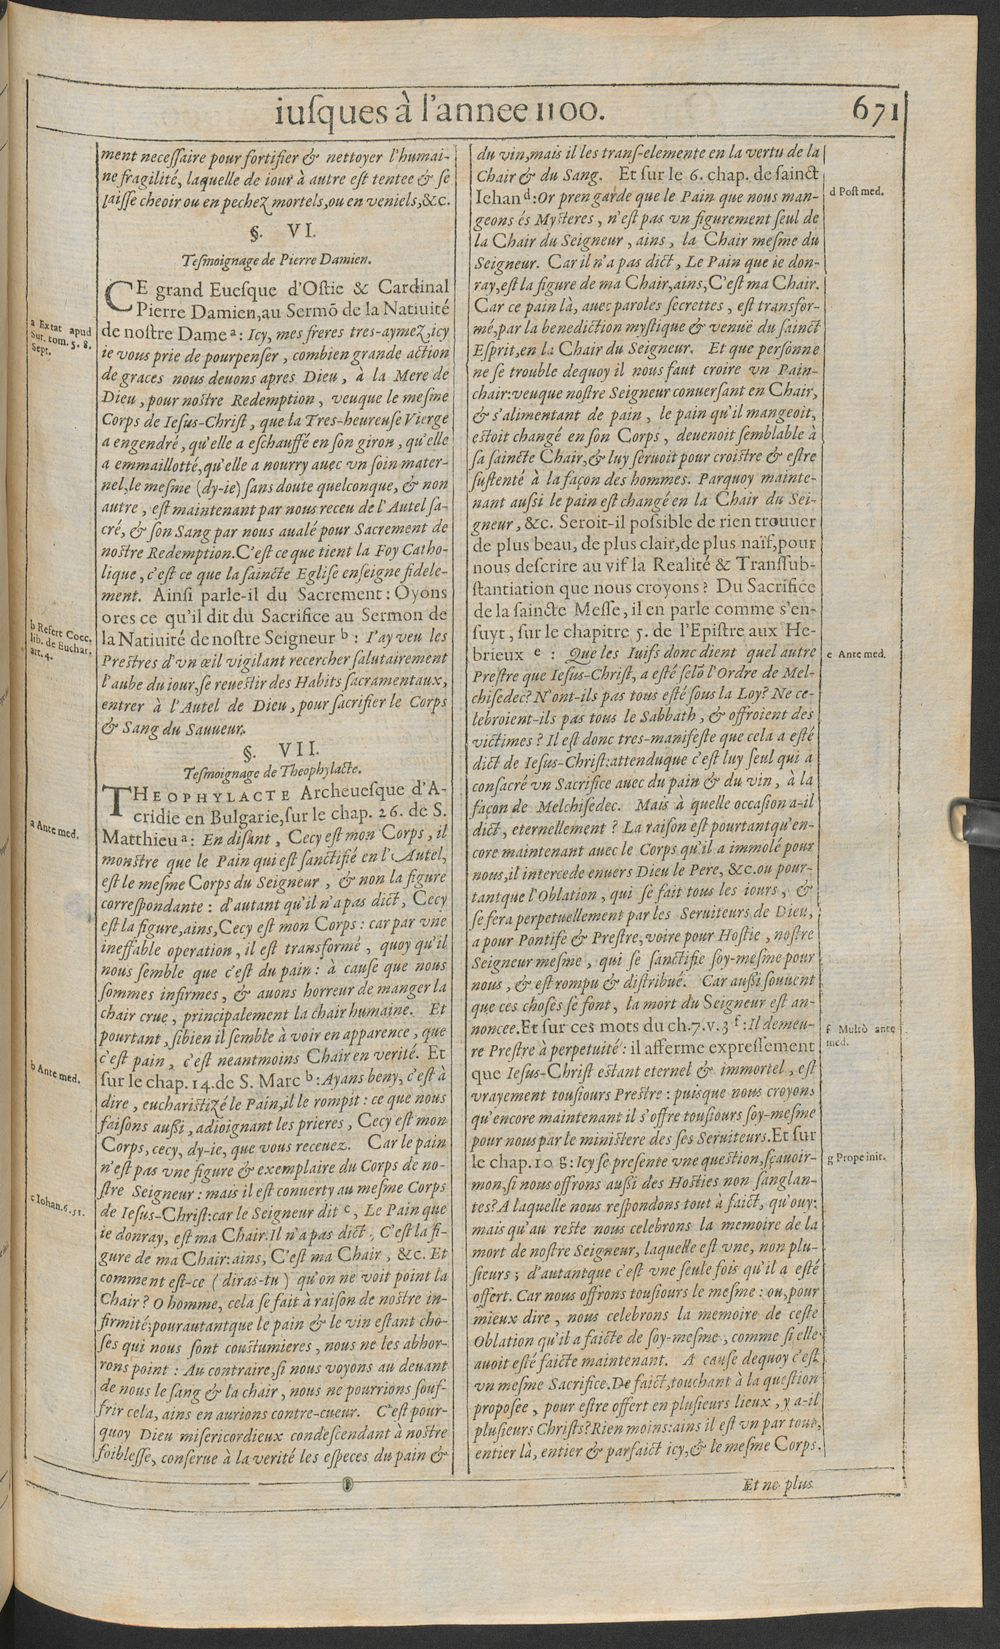 iuſques à l'annee 1100.
671
ment neceſſaire pour fortifier & nettoyer l'humai-
ne fragilité, laquelle de iour à autre eſt tentee & ſe
laiſſe cheoir ou en pechez mortels, ou en veniels, &c.
§. VI.
Teſmoignage de Pierre Damien.
CE grand Eueſque d'Oſtie & Cardinal
Pierre Damien, au Sermõ de la Natiuité
de noſtre Dame a: Icy, mes freres tres-aymez, icy
ie vous prie de pourpenſer, combien grande action
de graces nous deuons apres Dieu, à la Mere de
Dieu, pour noſtre Redemption, veuque le meſme
Corps de Ieſus-Chriſt, que la Tres-heureuſe Vierge
a engendré, qu'elle a eſchauffé en ſon giron, qu'elle
a emmaillotté, qu'elle a nourry auec vn ſoin mater-
nel, le meſme (dy-ie) ſans doute quelconque, & non
autre, eſt maintenant par nous receu de l'Autel ſa-
cré, & ſon Sang par nous aualé pour Sacrement de
noſtre Redemption. C'eſt ce que tient la Foy Catho-
lique, c'eſt ce que la ſaincte Egliſe enſeigne fidele-
ment. Ainſi parle-il du Sacrement: Oyons
ores ce qu'il dit du Sacrifice au Sermon de
la Natiuité de noſtre Seigneur b: I'ay veu les
Preſtres d'vn œil vigilant recercher ſalutairement
l'aube du iour, ſe reueſtir des Habits ſacramentaux,
entrer à l'Autel de Dieu, pour ſacrifier le Corps
& Sang du Sauueur.
§. VII.
Teſmoignage de Theophylacte.
THEOPHYLACTE Archeueſque d'A-
cridie en Bulgarie, ſur le chap. 26. de S.
Matthieu a: En diſant, Cecy eſt mon Corps, il
monſtre que le Pain qui eſt ſanctifié en l'Autel,
eſt le meſme Corps du Seigneur, & non la figure
correſpondante: d'autant qu'il n'a pas dict, Cecy
eſt la figure, ains, Cecy eſt mon Corps: car par vne
ineffable operation, il eſt transformé, quoy qu'il
nous ſemble que c'eſt du pain: à cauſe que nous
ſommes infirmes, & auons horreur de manger la
chair crue, principalement la chair humaine. Et
pourtant, ſibien il ſemble à voir en apparence, que
c'eſt pain, c'eſt neantmoins Chair en verité. Et
ſur le chap. 14. de S. Marc b: Ayans beny, c'eſt à
dire, euchariſtizé le Pain, il le rompit: ce que nous
faiſons auſſi, adioignant les prieres, Cecy eſt mon
Corps, cecy, dy-ie, que vous receuez. Car le pain
n'eſt pas vne figure & exemplaire du Corps de no-
ſtre Seigneur: mais il eſt conuerty au meſme Corps
de Ieſus-Chriſt: car le Seigneur dit c, Le Pain que
ie donray, eſt ma Chair. Il n'a pas dict, C'eſt la fi-
gure de ma Chair: ains, C'eſt ma Chair, &c. Et
comment eſt-ce (diras-tu) qu'on ne voit point la
Chair? O homme, cela ſe fait à raiſon de noſtre in-
firmité; pourautantque le pain & le vin eſtant cho-
ſes qui nous ſont couſtumieres, nous ne les abhor-
rons point: Au contraire, ſi nous voyons au deuant
de nous le ſang & la chair, nous ne pourrions ſouf-
frir cela, ains en aurions contre-cueur. C'eſt pour-
quoy Dieu miſericordieux condeſcendant à noſtre
foibleſſe, conſerue à la verité les eſpeces du pain &
a Extat apud
Sur. tom. 5. 8.
Sept.
b Refert Cocc.
lib. de Euchar.
art. 4.
a Ante med.
b Ante med.
c Iohan. 6. 51.
du vin, mais il les tranſ-elemente en la vertu de la
Chair & du Sang. Et ſur le 6. chap. de ſainct
Iehan d: Or pren garde que le Pain que nous man-
geons és Myſteres, n'eſt pas vn figurement ſeul de
la Chair du Seigneur, ains, la Chair meſme du
Seigneur. Car il n'a pas dict, Le Pain que ie don-
ray, eſt la figure de ma Chair, ains, C'eſt ma Chair.
Car ce pain là, auec paroles ſecrettes, eſt transfor-
mé, par la benediction myſtique & venuë du ſainct
Eſprit, en la Chair du Seigneur. Et que perſonne
ne ſe trouble dequoy il nous faut croire vn Pain-
chair: veuque noſtre Seigneur conuerſant en Chair,
& s'alimentant de pain, le pain qu'il mangeoit,
eſtoit changé en ſon Corps, deuenoit ſemblable à
ſa ſaincte Chair, & luy ſeruoit pour croiſtre & eſtre
ſuſtenté à la façon des hommes. Parquoy mainte-
nant auſſi le pain eſt changé en la Chair du Sei-
gneur, &c. Seroit-il poſſible de rien trouuer
de plus beau, de plus clair, de plus naïf, pour
nous deſcrire au vif la Realité & Tranſſub-
ſtantiation que nous croyons? Du Sacrifice
de la ſaincte Meſſe, il en parle comme s'en-
ſuyt, ſur le chapitre 5. de l'Epiſtre aux He-
brieux e: Que les Iuifs donc dient quel autre
Preſtre que Ieſus-Chriſt, a eſté ſelõ l'Ordre de Mel-
chiſedec? N'ont-ils pas tous eſté ſous la Loy? Ne ce-
lebroient-ils pas tous le Sabbath, & offroient des
victimes? Il eſt donc tres-manifeſte que cela a eſté
dict de Ieſus-Chriſt: attenduque c'eſt luy ſeul qui a
conſacré vn Sacrifice auec du pain & du vin, à la
façon de Melchiſedec. Mais à quelle occaſion a-il
dict, eternellement? La raiſon eſt pourtantqu'en-
core maintenant auec le Corps qu'il a immolé pour
nous, il intercede enuers Dieu le Pere, &c. ou pour-
tantque l'Oblation, qui ſe fait tous les iours, &
ſe fera perpetuellement par les Seruiteurs de Dieu,
a pour Pontife & Preſtre, voire pour Hoſtie, noſtre
Seigneur meſme, qui ſe ſanctifie ſoy-meſme pour
nous, & eſt rompu & diſtribué. Car auſſi ſouuent
que ces choſes ſe font, la mort du Seigneur eſt an-
noncee. Et ſur ces mots du ch. 7. v. 3 f: Il demeu-
re Preſtre à perpetuité: il afferme expreſſement
que Ieſus-Chriſt eſtant eternel & immortel, eſt
vrayement touſiours Preſtre: puiſque nous croyons
qu'encore maintenant il s'offre touſiours ſoy-meſme
pour nous par le miniſtere des ſes Seruiteurs. Et ſur
le chap. 10 g: Icy ſe preſente vne queſtion, ſçauoir-
mon, ſi nous offrons auſſi des Hoſties non ſanglan-
tes? A laquelle nous reſpondons tout à faict, qu'ouy:
mais qu'au reſte nous celebrons la memoire de la
mort de noſtre Seigneur, laquelle eſt vne, non plu-
ſieurs; d'autantque c'eſt vne ſeule fois qu'il a eſté
offert. Car nous offrons touſiours le meſme: ou, pour
mieux dire, nous celebrons la memoire de ceſte
Oblation qu'il a faicte de ſoy-meſme, comme ſi elle
auoit eſté faicte maintenant. A cauſe dequoy c'eſt
vn meſme Sacrifice. De faict, touchant à la queſtion
propoſee, pour eſtre offert en pluſieurs lieux, y a-il
pluſieurs Chriſts? Rien moins: ains il eſt vn par tout,
entier là, entier & parfaict icy, & le meſme Corps.
d Poſt med.
e Ante med.
f Multò ante
med.
g Prope init.
Et ne plus